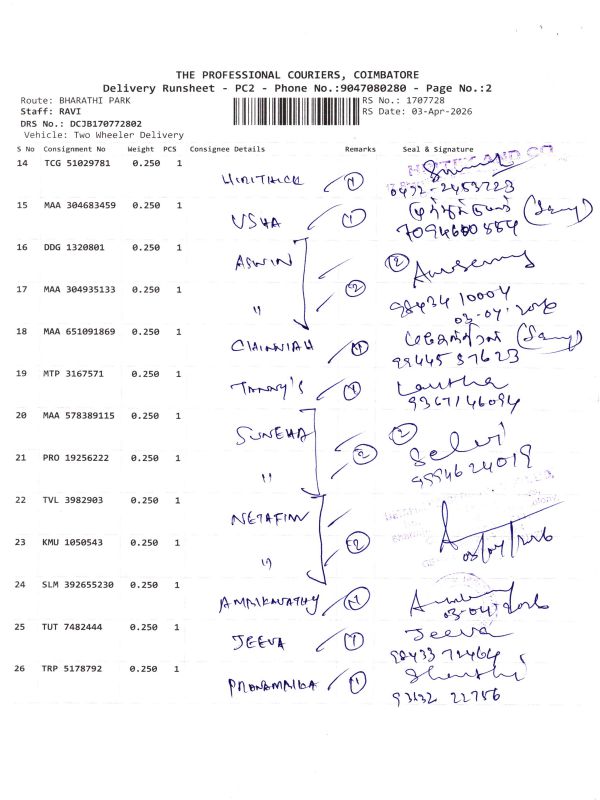 THE PROFESSIONAL COURIERS, COIMBATORE
Delivery Runsheet - PC2 - Phone No.:9047080280 - Page No.:2
Route: BHARATHI PARK RS No.: 1707728
Staff: RAVI RS Date: 03-Apr-2026
DRS No.: DCJB170772802
Vehicle: Two Wheeler Delivery
S No Consignment No Weight PCS Consignee Details Remarks Seal & Signature
14 TCG 51029781 0.250 1
1
15 MAA 304683459 0.250 1
USHA 1
16 DDG 1320801 0.250 1
ASWIN 2
17 MAA 304935133 0.250 1
" 2 98434 10004
03-04-2026
18 MAA 651091869 0.250 1
1 99445 37623
19 MTP 3167571 0.250 1
1 Lautha
9367146094
20 MAA 578389115 0.250 1
SUNEHA 2
21 PRO 19256222 0.250 1
" 2 Selvi
9994624019
22 TVL 3982903 0.250 1
NETAFIM
23 KMU 1050543 0.250 1
" 2 03/04/2026
24 SLM 392655230 0.250 1
1 03-04-2026
25 TUT 7482444 0.250 1
JEEVA 1 Jeeva
98433 72464
26 TRP 5178792 0.250 1
1
93632 22756